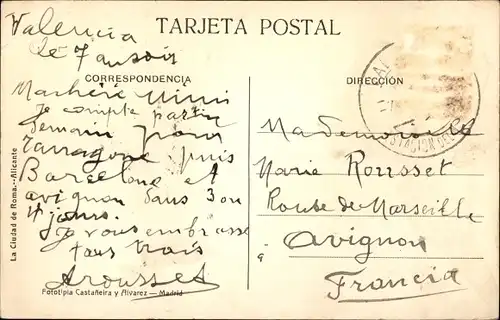 TARJETA POSTAL
CORRESPONDENCIA
DIRECCIÓN
Valencia
le 7
Ma chérie Mimi
Je compte partir
demain pour
Tarragone puis
Barcelone et
avignon dans 3 ou
4 jours.
Je vous embrasse
tous trois
Arousset
Mademoiselle
Marie Rousset
Route de Marseille
à Avignon
Francia
La Ciudad de Roma.--Alicante
Fototipia Castañeira y Álvarez — Madrid
ESTACION DEL